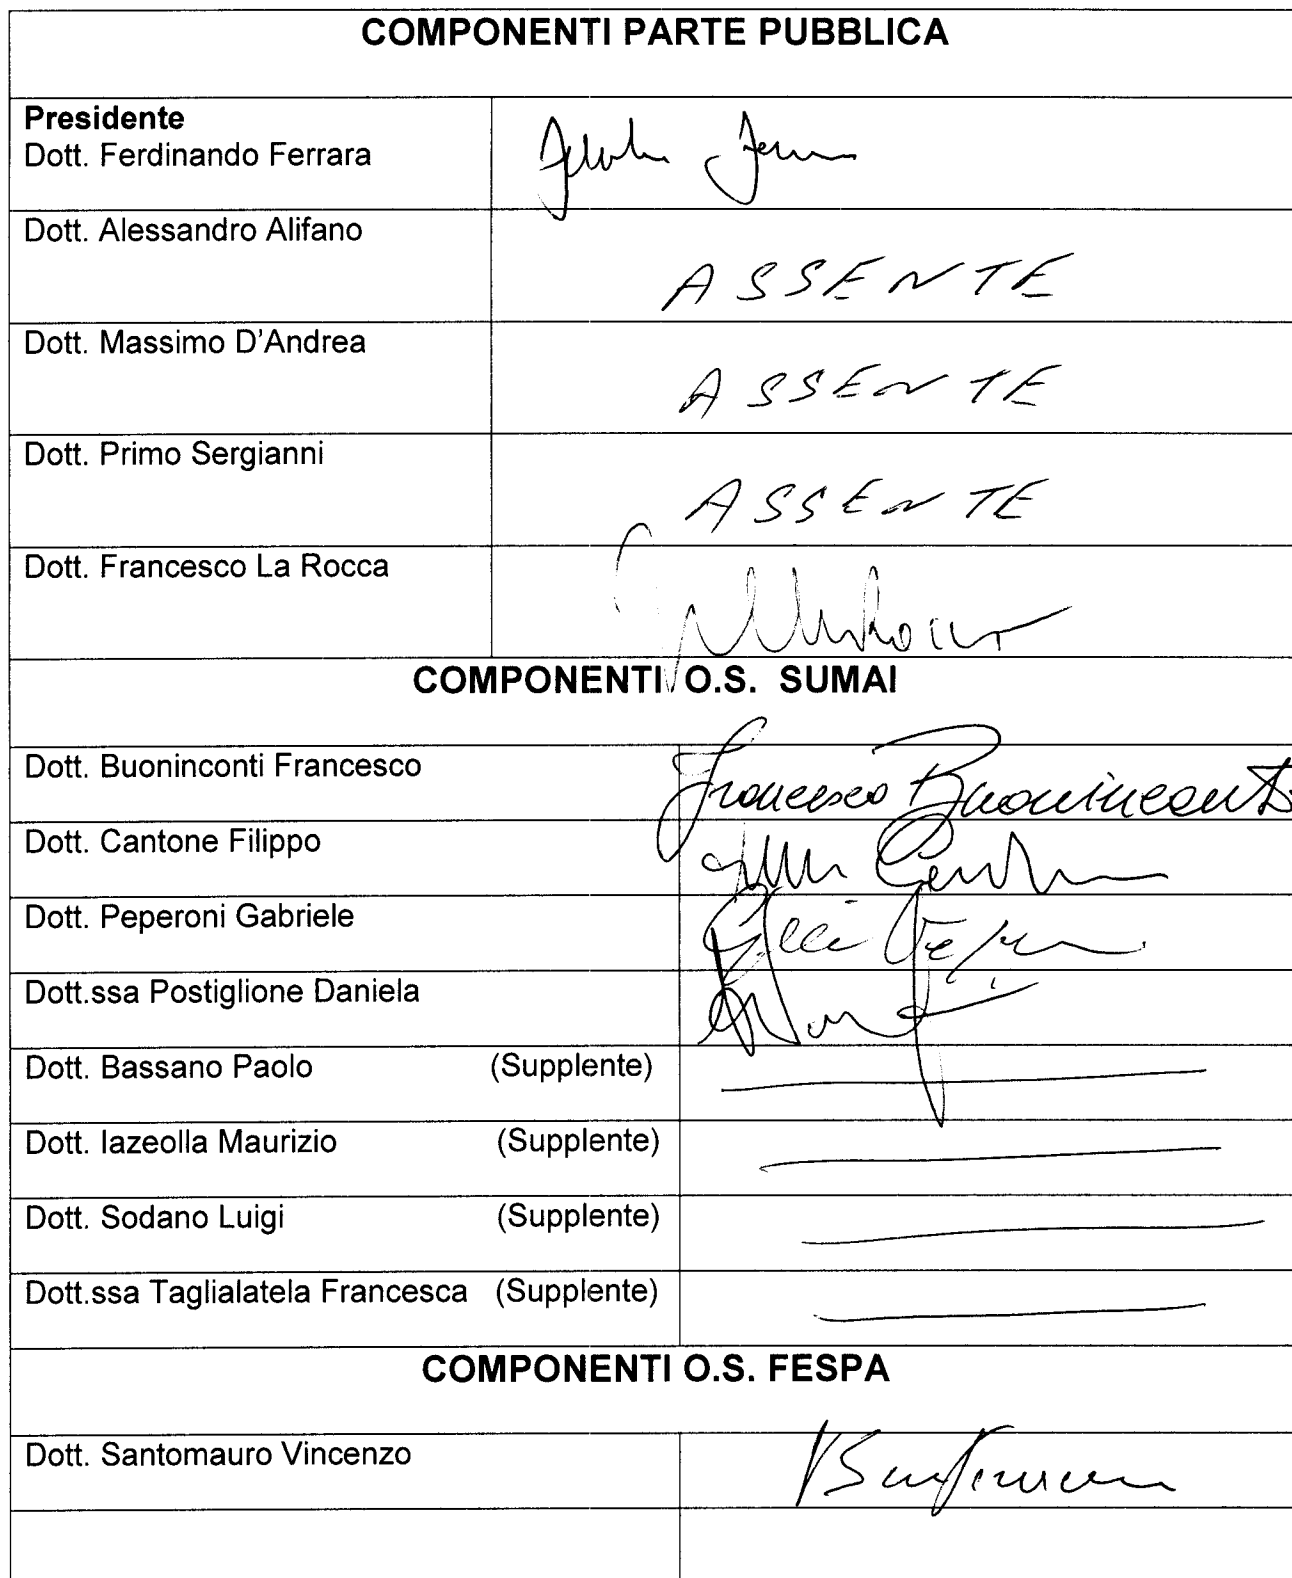 COMPONENTI PARTE PUBBLICA
Presidente
Dott. Ferdinando Ferrara
Dott. Alessandro Alifano
ASSENTE
Dott. Massimo D'Andrea
ASSENTE
Dott. Primo Sergianni
ASSENTE
Dott. Francesco La Rocca
COMPONENTI O.S. SUMAI
Dott. Buoninconti Francesco Francesco Buoninconti
Dott. Cantone Filippo
Dott. Peperoni Gabriele
Dott.ssa Postiglione Daniela
Dott. Bassano Paolo (Supplente)
Dott. Iazeolla Maurizio (Supplente)
Dott. Sodano Luigi (Supplente)
Dott.ssa Taglialatela Francesca (Supplente)
COMPONENTI O.S. FESPA
Dott. Santomauro Vincenzo